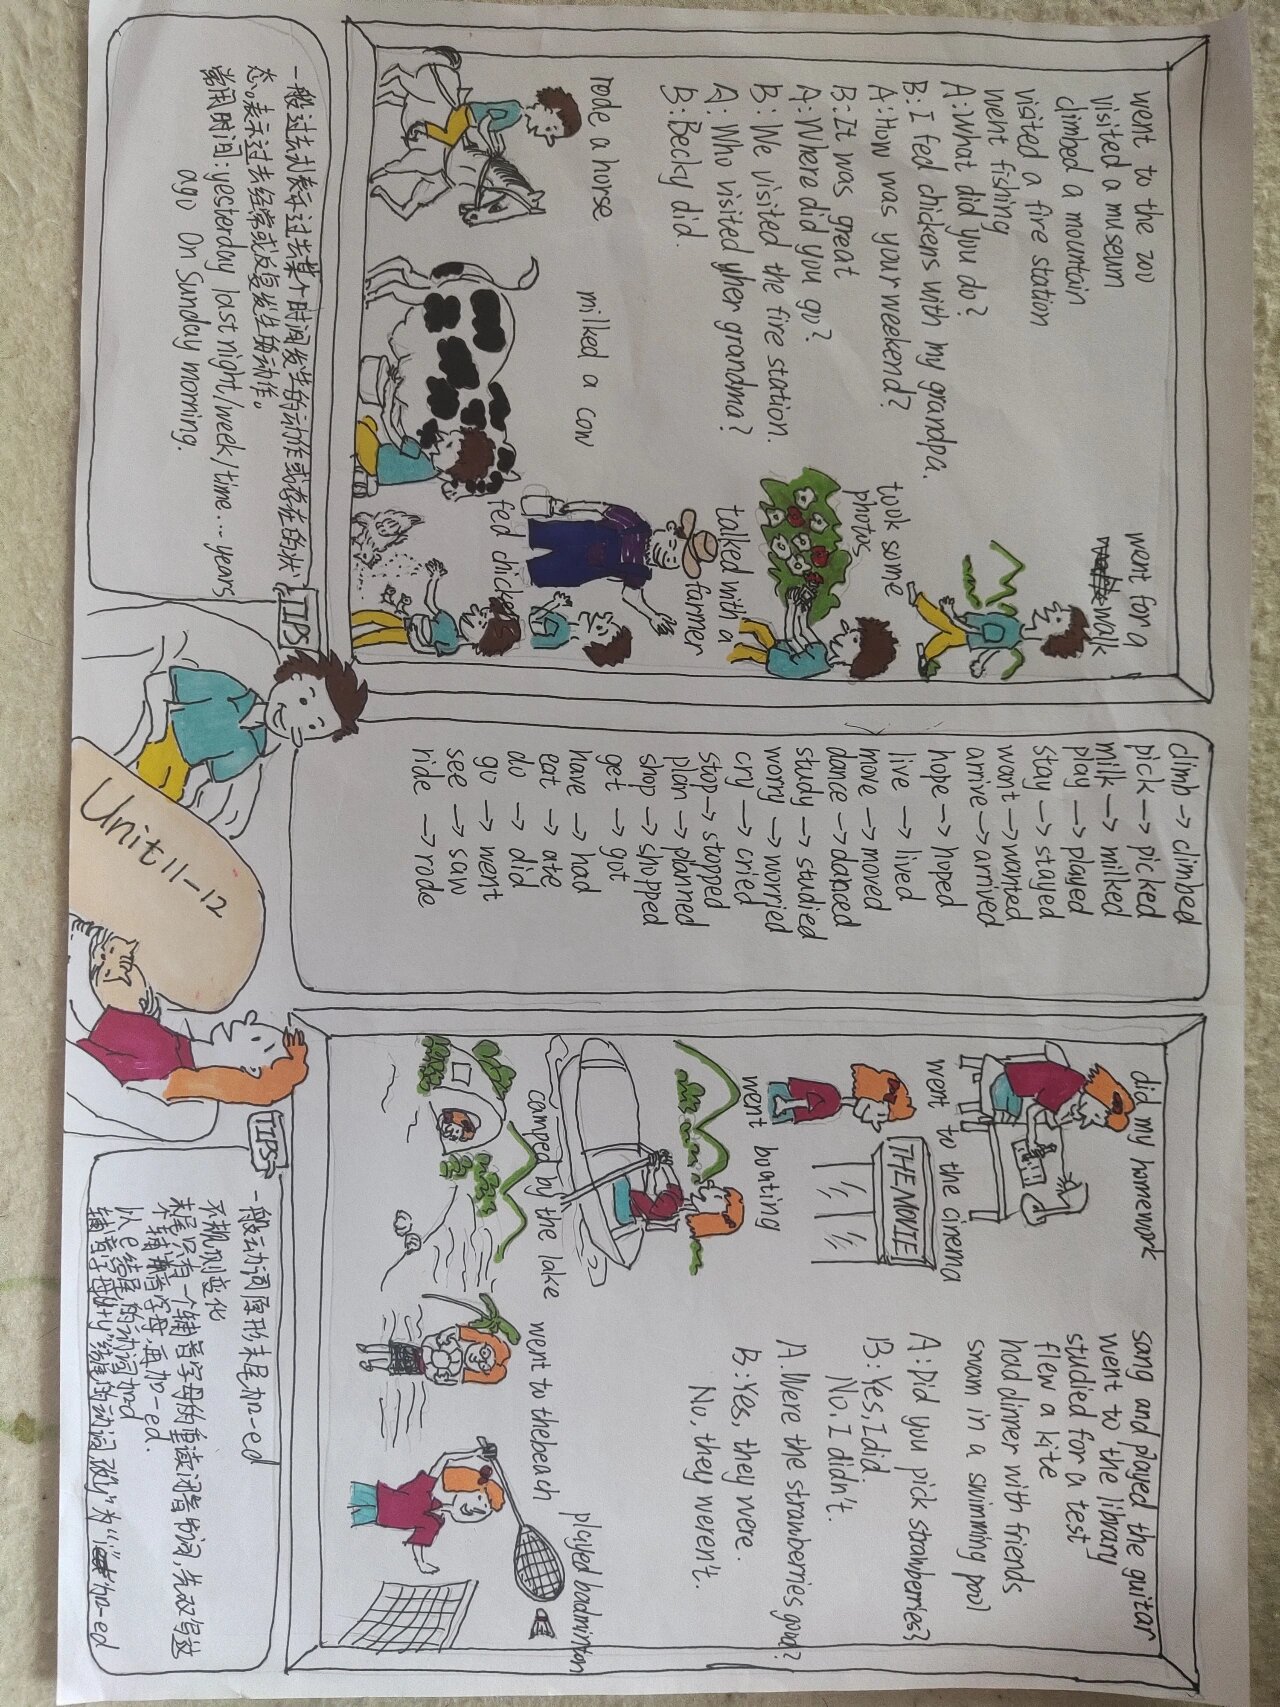 went to the zoo
visited a museum
climbed a mountain
visited a fire station
went fishing
A: What did you do?
B: I fed chickens with my grandpa.
A: How was your weekend?
B: It was great
A: Where did you go?
B: We visited the fire station.
A: Who visited yher grandma?
B: Becky did.
rode a horse
milked a cow
went for a
walk
took some
photos
talked with a
farmer
fed chicken
climb → climbed
pick → picked
milk → milked
play → played
stay → stayed
want → wanted
arrive → arrived
hope → hoped
live → lived
move → moved
dance → danced
study → studied
worry → worried
cry → cried
stop → stopped
plan → planned
shop → shopped
get → got
have → had
eat → ate
do → did
go → went
see → saw
ride → rode
did my homework
went to the cinema
THE MOVIE
went boating
camped by the lake
went to thebeach
played badminton
sang and played the guitar
went to the library
studied for a test
flew a kite
had dinner with friends
swam in a swimming pool
A: Did you pick strawberries?
B: Yes, I did.
No, I didn't.
A. Were the strawberries good?
B: Yes, they were.
No, they weren't.
TIPS
一般过去式表示过去某个时间发生的动作或存在的状
态。表示过去经常或反复发生的动作。
常用时间: yesterday last night/week/time... years
ago On Sunday morning.
Unit11-12
TIPS
一般动词原形末尾加-ed
不规则变化
末尾只有一个辅音字母的重读闭音动词,先双写这
个辅音字母,再加-ed.
以e结尾的动词加d
辅音字母+y结尾的动词,改y为"i"加-ed